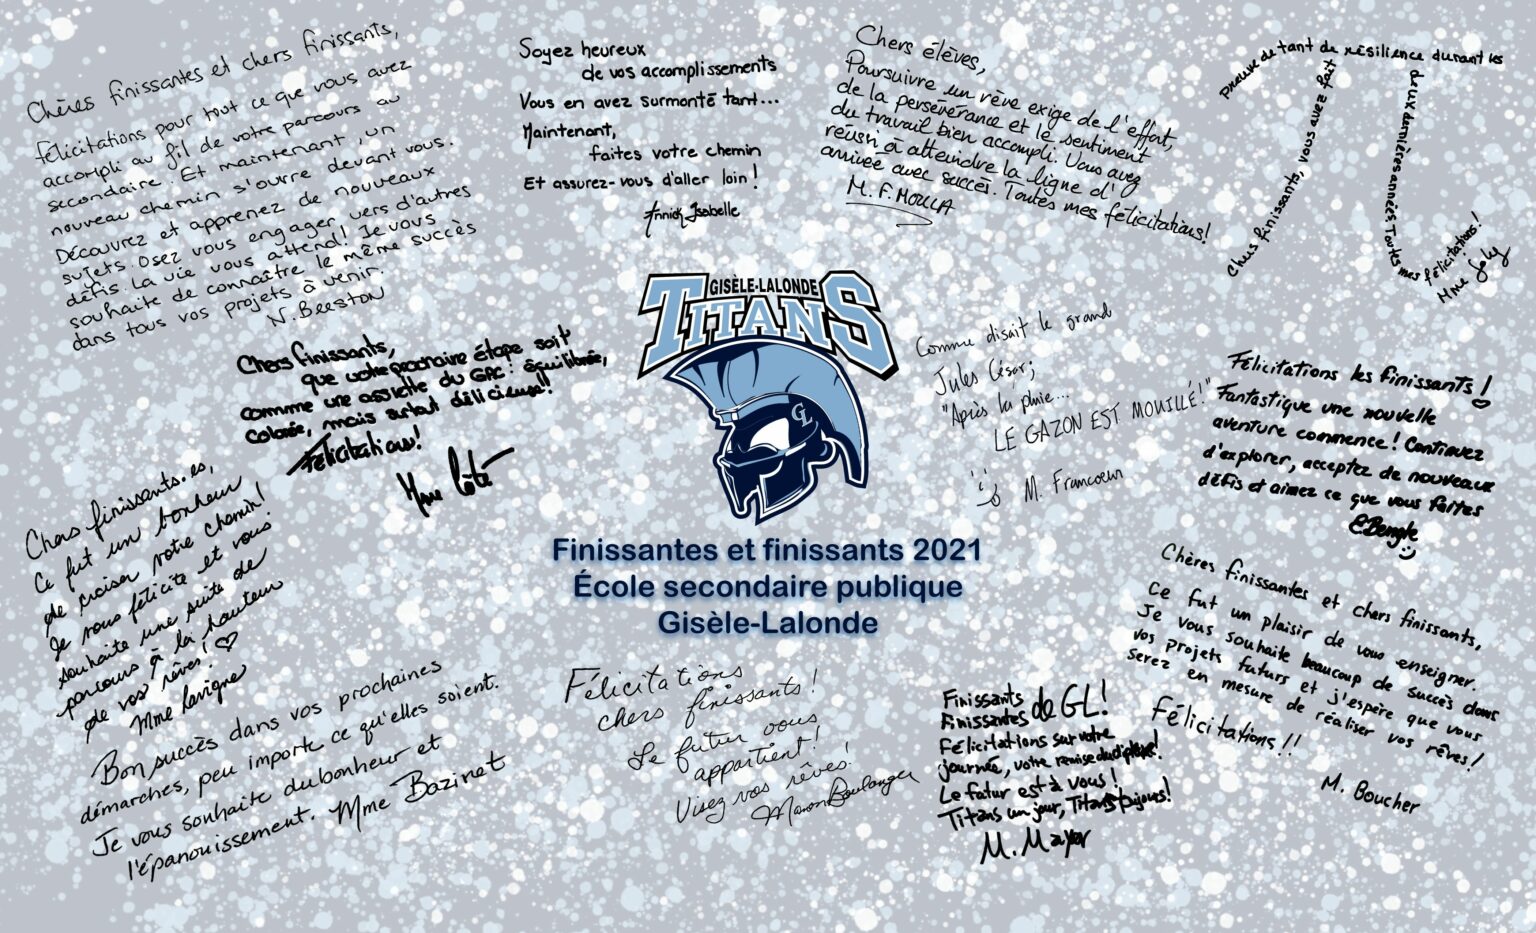 Chères finissantes et chers finissants,
Félicitations pour tout ce que vous avez
accompli au fil de votre parcours au
secondaire. Et maintenant, un
nouveau chemin s'ouvre devant vous.
Découvrez et apprenez de nouveaux
sujets. Osez vous engager vers d'autres
défis. La vie vous attend! Je vous
souhaite de connaître le même succès
dans tous vos projets à venir.
N. Beeston
Soyez heureux
de vos accomplissements
Vous en avez surmonté tant...
Maintenant,
faites votre chemin
Et assurez-vous d'aller loin!
Annick Isabelle
Chers élèves,
Poursuivre un rêve exige de l'effort,
de la persévérance et le sentiment
du travail bien accompli. Vous avez
réussi à atteindre la ligne d'
arrivée avec succès. Toutes mes félicitations!
M. F. MOULLA
Chers finissants, vous avez fait
preuve de tant de résilience durant les
deux dernières années Toutes mes félicitations!
Mme Joly
GISÈLE-LALONDE
TITANS
GL
Chers finissants,
que votre prochaine étape soit
comme une assiette du GAC: équilibrée,
colorée, mais surtout délicieuse!!
Félicitations!
Mme Côté
Comme disait le grand
Jules César;
"Après la pluie...
LE GAZON EST MOUILLÉ!"
M. Francoeur
Félicitations les finissants!
Fantastique une nouvelle
aventure commence! Continuez
d'explorer, acceptez de nouveaux
défis et aimez ce que vous faites
Chers finissants.es,
Ce fut un bonheur
de croiser votre chemin!
Je vous félicite et vous
souhaite une suite de
parcours à la hauteur
de vos rêves!
Mme Lavigne
Finissantes et finissants 2021
École secondaire publique
Gisèle-Lalonde
Chères finissantes et chers finissants,
Ce fut un plaisir de vous enseigner.
Je vous souhaite beaucoup de succès dans
vos projets futurs et j'espère que vous
serez en mesure de réaliser vos rêves!
Félicitations!!
M. Boucher
Bon succès dans vos prochaines
démarches, peu importe ce qu'elles soient.
Je vous souhaite du bonheur et
l'épanouissement. Mme Bazinet
Félicitations
chers finissants!
Le futur vous
appartient!
Visez vos rêves!
Manon Boulanger
Finissants
Finissantes de GL!
Félicitations sur votre
journée, votre remise du diplôme!
Le futur est à vous!
Titans un jour, Titans toujours!
M. Mayer